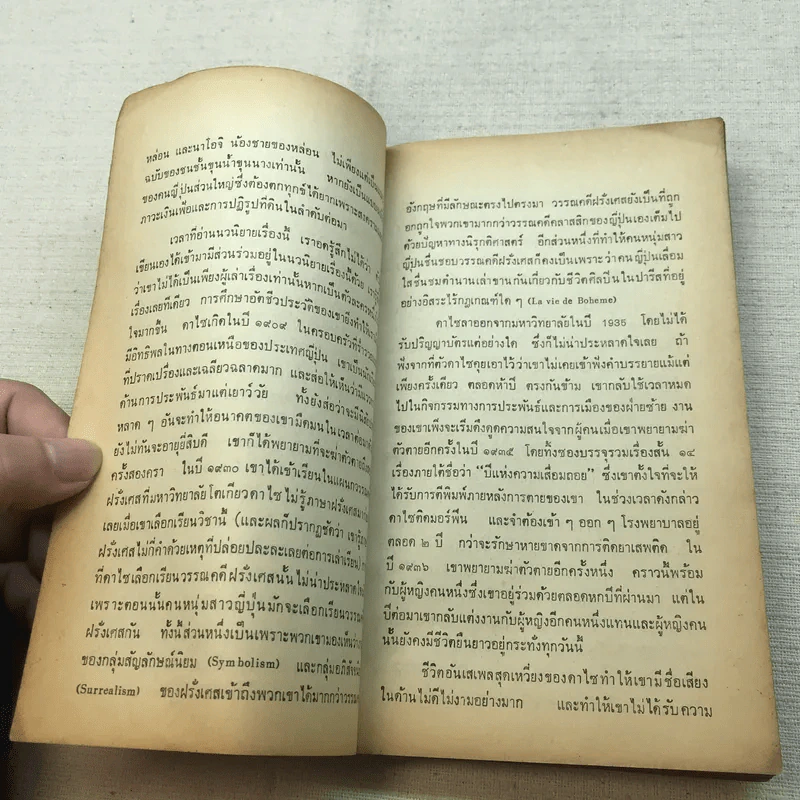 หล่อน และนาโอจิ น้องชายของหล่อน ไม่เพียงแต่เป็น
ฉบับของชนชั้นขุนน้ำขุนนางเท่านั้น หากยังเป็น
ของคนญี่ปุ่นส่วนใหญ่ซึ่งต้องตกทุกข์ได้ยากเพราะสงคราม
ภาวะเงินเฟ้อและการปฏิรูปที่ดินในลำดับต่อมา
เวลาที่อ่านนวนิยายเรื่องนี้ เราอดรู้สึกไม่ได้ว่า
เขียนเองได้เข้ามามีส่วนร่วมอยู่ในนวนิยายเรื่องนี้ด้วย
ว่าเขาไม่ได้เป็นเพียงผู้เล่าเรื่องเท่านั้นหากเป็นตัวละคร
เรื่องเลยทีเดียว การศึกษาอัตชีวประวัติของเขายิ่งทำให้
ใจมากขึ้น ดาไซเกิดในปี ๑๙๐๙ ในครอบครัวที่ร่ำรวย
มีอิทธิพลในทางตอนเหนือของประเทศญี่ปุ่น เขาเป็น
ที่ปราดเปรื่องและเฉลียวฉลาดมาก และส่อให้เห็นว่ามี
ด้านการประพันธ์มาแต่เยาว์วัย ทั้งยังส่อว่าจะมี
หลาด ๆ อันจะทำให้อนาคตของเขามืดมนในเวลาต่อมา
ยังไม่ทันจะอายุยี่สิบดี เขาก็ได้พยายามที่จะฆ่าตัวตายถึง
ครั้งสองครา ในปี ๑๙๓๐ เขาได้เข้าเรียนในแผนกวรรณคดี
ฝรั่งเศสที่มหาวิทยาลัยโตเกียวดาไซไม่รู้ภาษาฝรั่งเศส
เลยเมื่อเขาเลือกเรียนวิชานี้ (และผลก็ปรากฏชัดว่า เขารู้
ฝรั่งเศสไม่กี่คำด้วยเหตุที่ปล่อยปละละเลยต่อการเล่าเรียน)
ที่ดาไซเลือกเรียนวรรณคดีฝรั่งเศสนั้น ไม่น่าประหลาดใจ
เพราะตอนนั้นคนหนุ่มสาวญี่ปุ่นมักจะเลือกเรียนวรรณคดี
ฝรั่งเศสกัน ทั้งนี้ส่วนหนึ่งเป็นเพราะพวกเขามองเห็นว่า
ของกลุ่มสัญลักษณ์นิยม (Symbolism) และกลุ่ม
(Surrealism) ของฝรั่งเศสเข้าถึงพวกเขาได้มากกว่าวรรณ
อังกฤษที่มีลักษณะตรงไปตรงมา วรรณคดีฝรั่งเศสยังเป็นที่ถูก
อกถูกใจพวกเขามากกว่าวรรณคดีคลาสสิกของญี่ปุ่นเองเต็มไป
ด้วยปัญหาทางนิรุกติศาสตร์ อีกส่วนหนึ่งที่ทำให้คนหนุ่มสาว
ญี่ปุ่นชื่นชอบวรรณคดีฝรั่งเศสก็คงเป็นเพราะว่า คนญี่ปุ่นเลื่อม
ใสชื่นชมตำนานเล่าขานกันเกี่ยวกับชีวิตศิลปินในปารีสที่อยู่
อย่างอิสระไร้กฎเกณฑ์ใด ๆ (La vie de Boheme)
ดาไซลาออกจากมหาวิทยาลัยในปี 1935 โดยไม่ได้
รับปริญญาบัตรแต่อย่างใด ซึ่งก็ไม่น่าประหลาดใจเลย ถ้า
ฟังจากที่ตัวดาไซคุยเอาไว้ว่าเขาไม่เคยเข้าฟังคำบรรยายแม้แต่
เพียงครั้งเดียว ตลอดห้าปี ตรงกันข้าม เขากลับใช้เวลาหมด
ไปในกิจกรรมทางการประพันธ์และการเมืองของฝ่ายซ้าย งาน
ของเขาเพิ่งจะเริ่มดึงดูดความสนใจจากผู้คนเมื่อเขาพยายามฆ่า
ตัวตายอีกครั้งในปี ๑๙๓๕ โดยทิ้งซองบรรจุรวมเรื่องสั้น ๑๔
เรื่องภายใต้ชื่อว่า “ปีแห่งความเสื่อมถอย” ซึ่งเขาตั้งใจที่จะให้
ได้รับการตีพิมพ์ภายหลังการตายของเขา ในช่วงเวลาดังกล่าว
ดาไซติดมอร์ฟีน และจำต้องเข้า ๆ ออก ๆ โรงพยาบาลอยู่
ตลอด ๒ ปี กว่าจะรักษาหายขาดจากการติดยาเสพติด ใน
ปี ๑๙๓๖ เขาพยายามฆ่าตัวตายอีกครั้งหนึ่ง คราวนี้พร้อม
กับผู้หญิงคนหนึ่งซึ่งเขาอยู่ร่วมด้วยตลอดหกปีที่ผ่านมา แต่ใน
ปีต่อมาเขากลับแต่งงานกับผู้หญิงอีกคนหนึ่งแทนและผู้หญิงคน
นั้นยังคงมีชีวิตยืนยาวอยู่กระทั่งทุกวันนี้
ชีวิตอันเสเพลสุดเหวี่ยงของดาไซทำให้เขามีชื่อเสียง
ในด้านไม่ดีไม่งามอย่างมาก และทำให้เขาไม่ได้รับความ